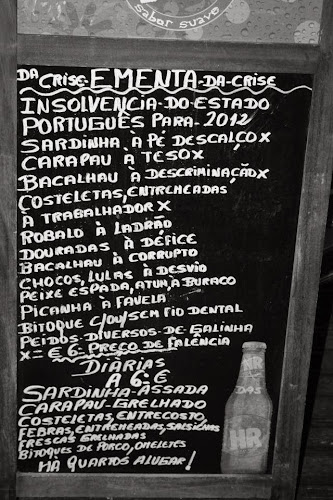 sabor suave
DA CRISE-EMENTA-DA-CRISE
INSOLVENCIA-DO-ESTADO
PORTUGUÊS PARA-2012
SARDINHA À PÉ DESCALÇO X
CARAPAU À TESO X
BACALHAU À DESCRIMINAÇÃO X
COSTELETAS, ENTREMEADAS
À TRABALHADOR X
ROBALO À LADRÃO
DOURADAS À DÉFICE
BACALHAU À CORRUPTO
CHOCOS, LULAS À DESVIO
PEIXE ESPADA, ATUM, À BURACO
PICANHA À FAVELA
BITOQUE C/OU/SEM FIO DENTAL
PEIDOS-DIVERSOS-DE-GALINHA
X= € 6-E PREÇO DE FALÊNCIA
DIÁRIAS
A 6-E
SARDINHA-ASSADA DAS
CARAPAU-GRELHADO
COSTELETAS, ENTRECOSTO,
FEBRAS, ENTREMEADAS, SALSICHAS
FRESCAS GRELHADAS
BITOQUES DE PORCO, OMELETES
HÁ QUARTOS ALUGAR!